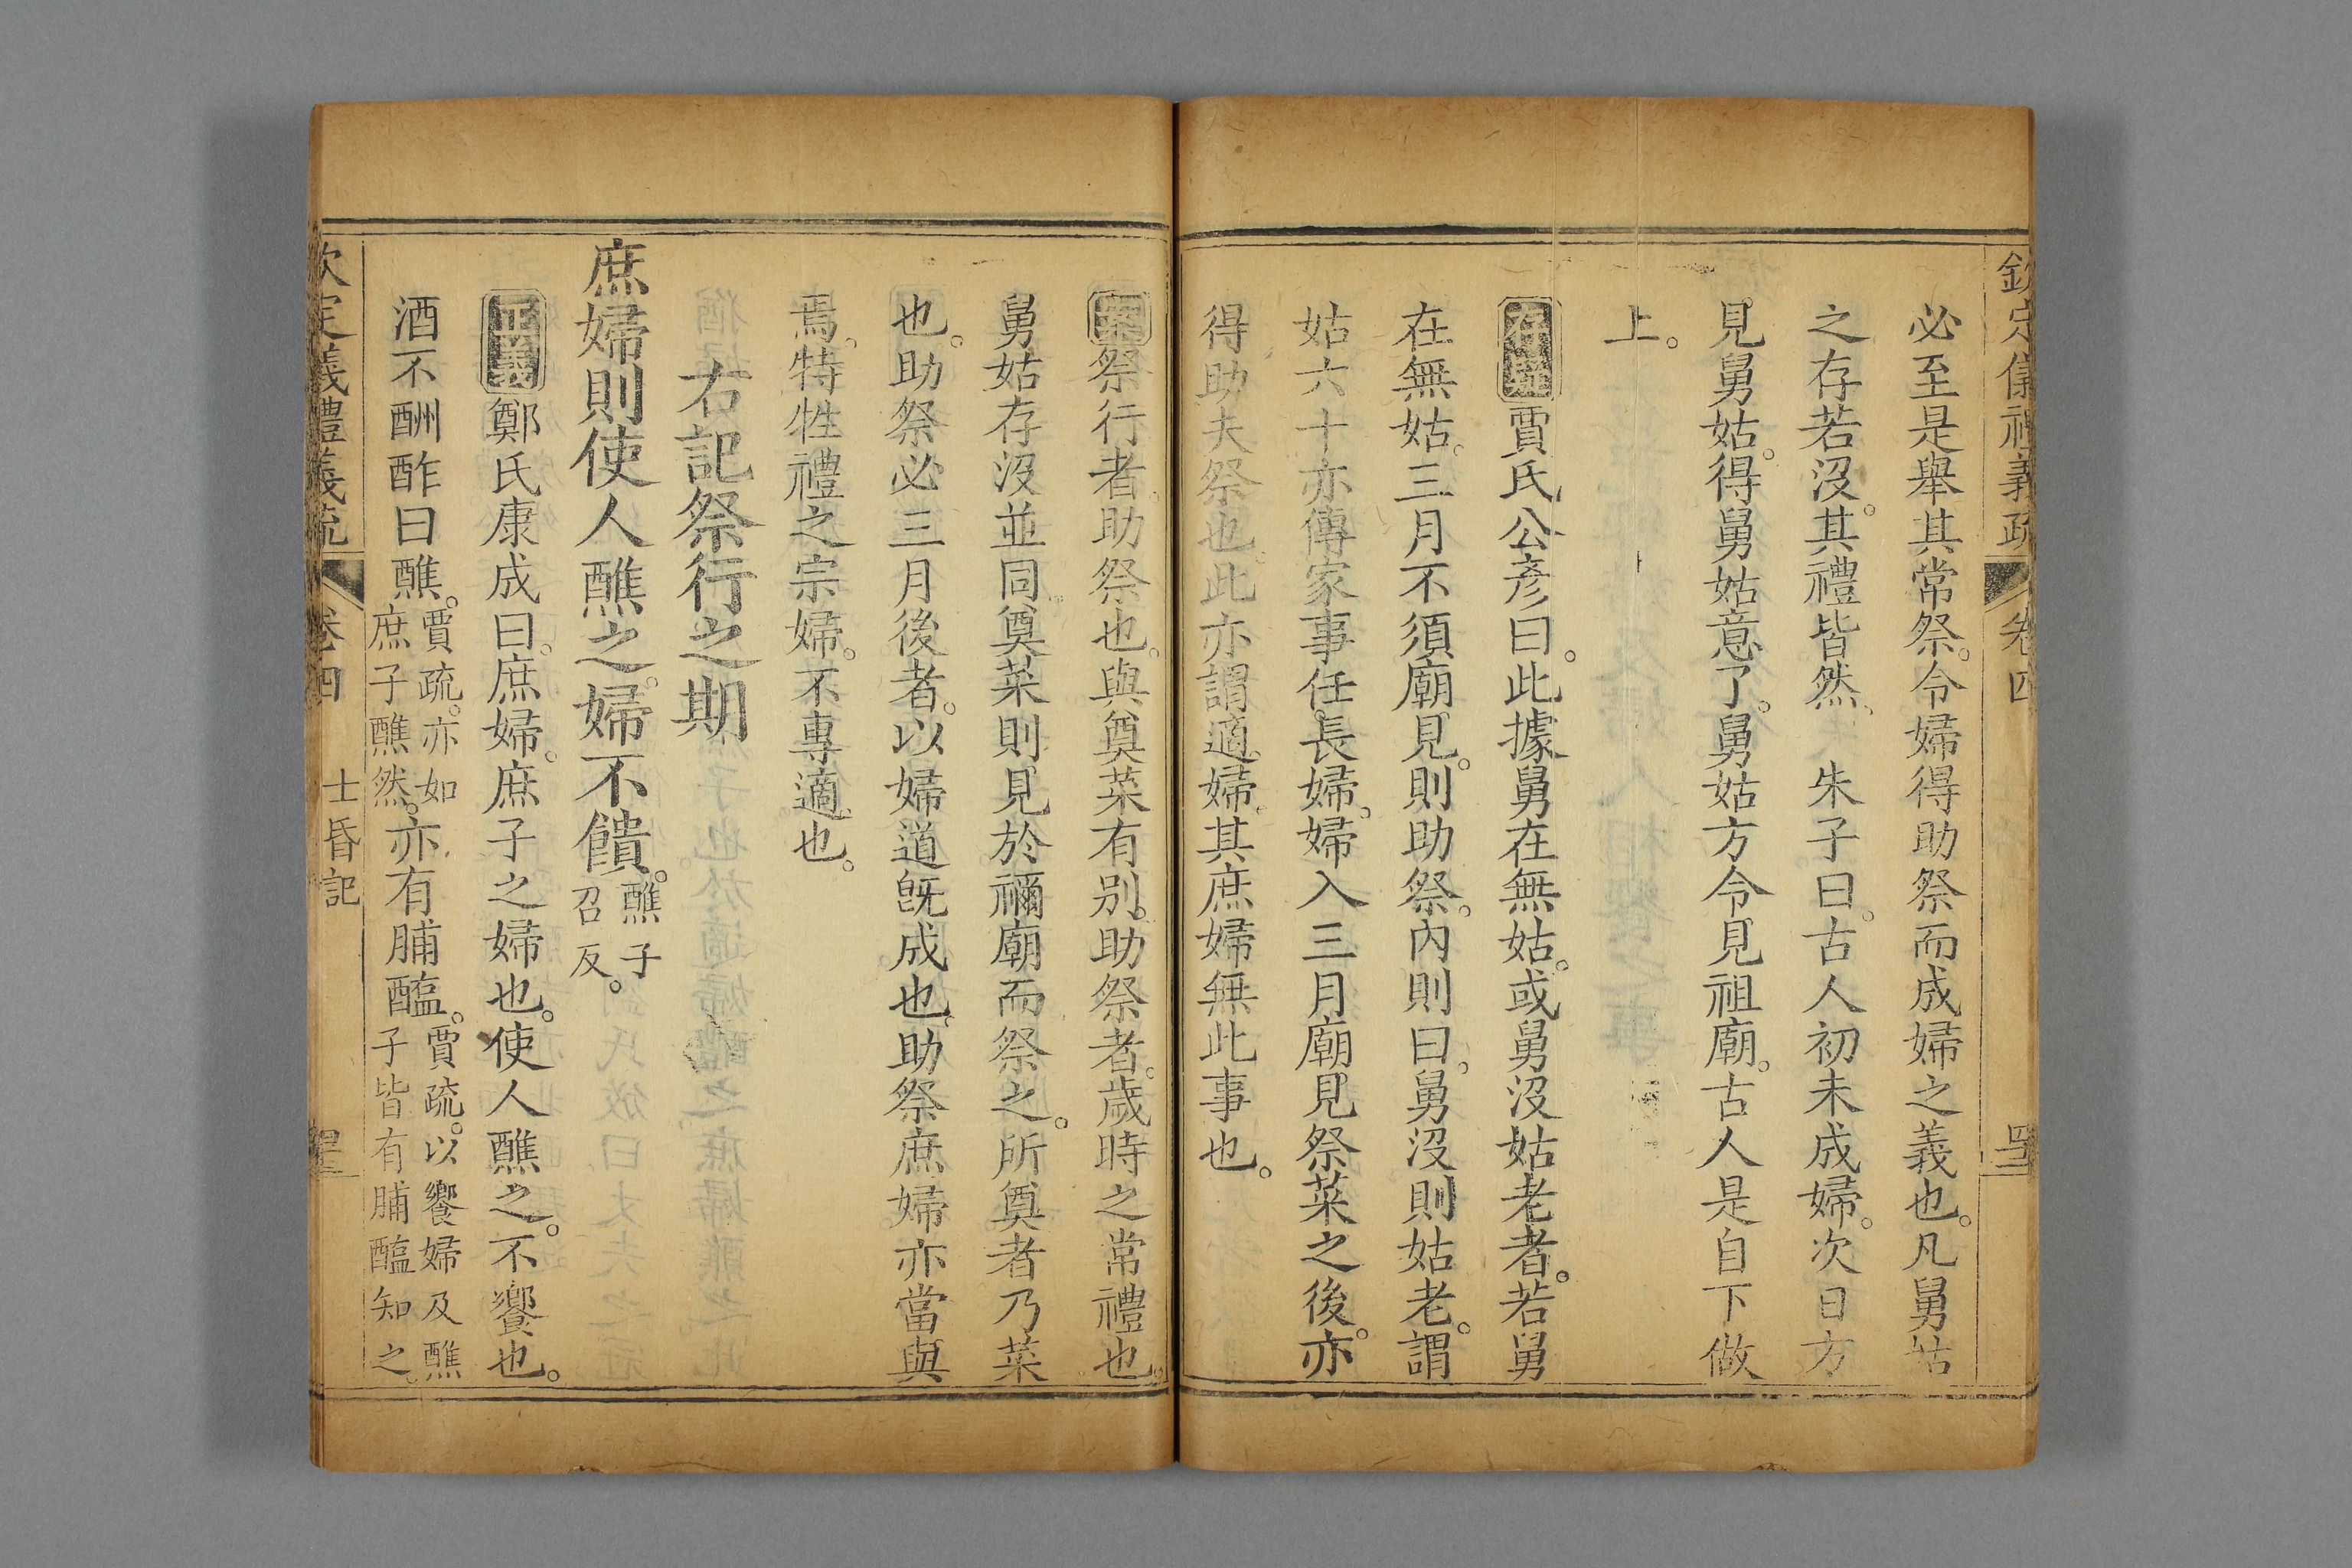 欽定儀禮義疏 卷四
必至是舉其常祭。令婦得助祭而成婦之義也。凡舅姑
之存若沒。其禮皆然。 朱子曰。古人初未成婦。次日方
見舅姑。得舅姑意了。舅姑方令見祖廟。古人是自下做
上。
存疑賈氏公彥曰。此據舅在無姑。或舅沒姑老者。若舅
在無姑。三月不須廟見。則助祭。內則曰。舅沒則姑老。謂
姑六十亦傳家事任長婦。婦入三月廟見祭菜之後。亦
得助夫祭也。此亦謂適婦。其庶婦無此事也。
案祭行者。助祭也。與奠菜有別。助祭者。歲時之常禮也。
舅姑存沒並同。奠菜則見於禰廟而祭之。所奠者乃菜
也。助祭必三月後者。以婦道旣成也。助祭庶婦亦當與
焉。特牲禮之宗婦。不專適也。
右記祭行之期
庶婦則使人醮之。婦不饋。醮子召反。
正義鄭氏康成曰。庶婦。庶子之婦也。使人醮之。不饗也。
酒不酬酢曰醮。賈疏。亦如庶子醮然。亦有脯醢。賈疏。以饗婦及醮子皆有脯醢知之。
欽定儀禮義疏 卷四 士昏記